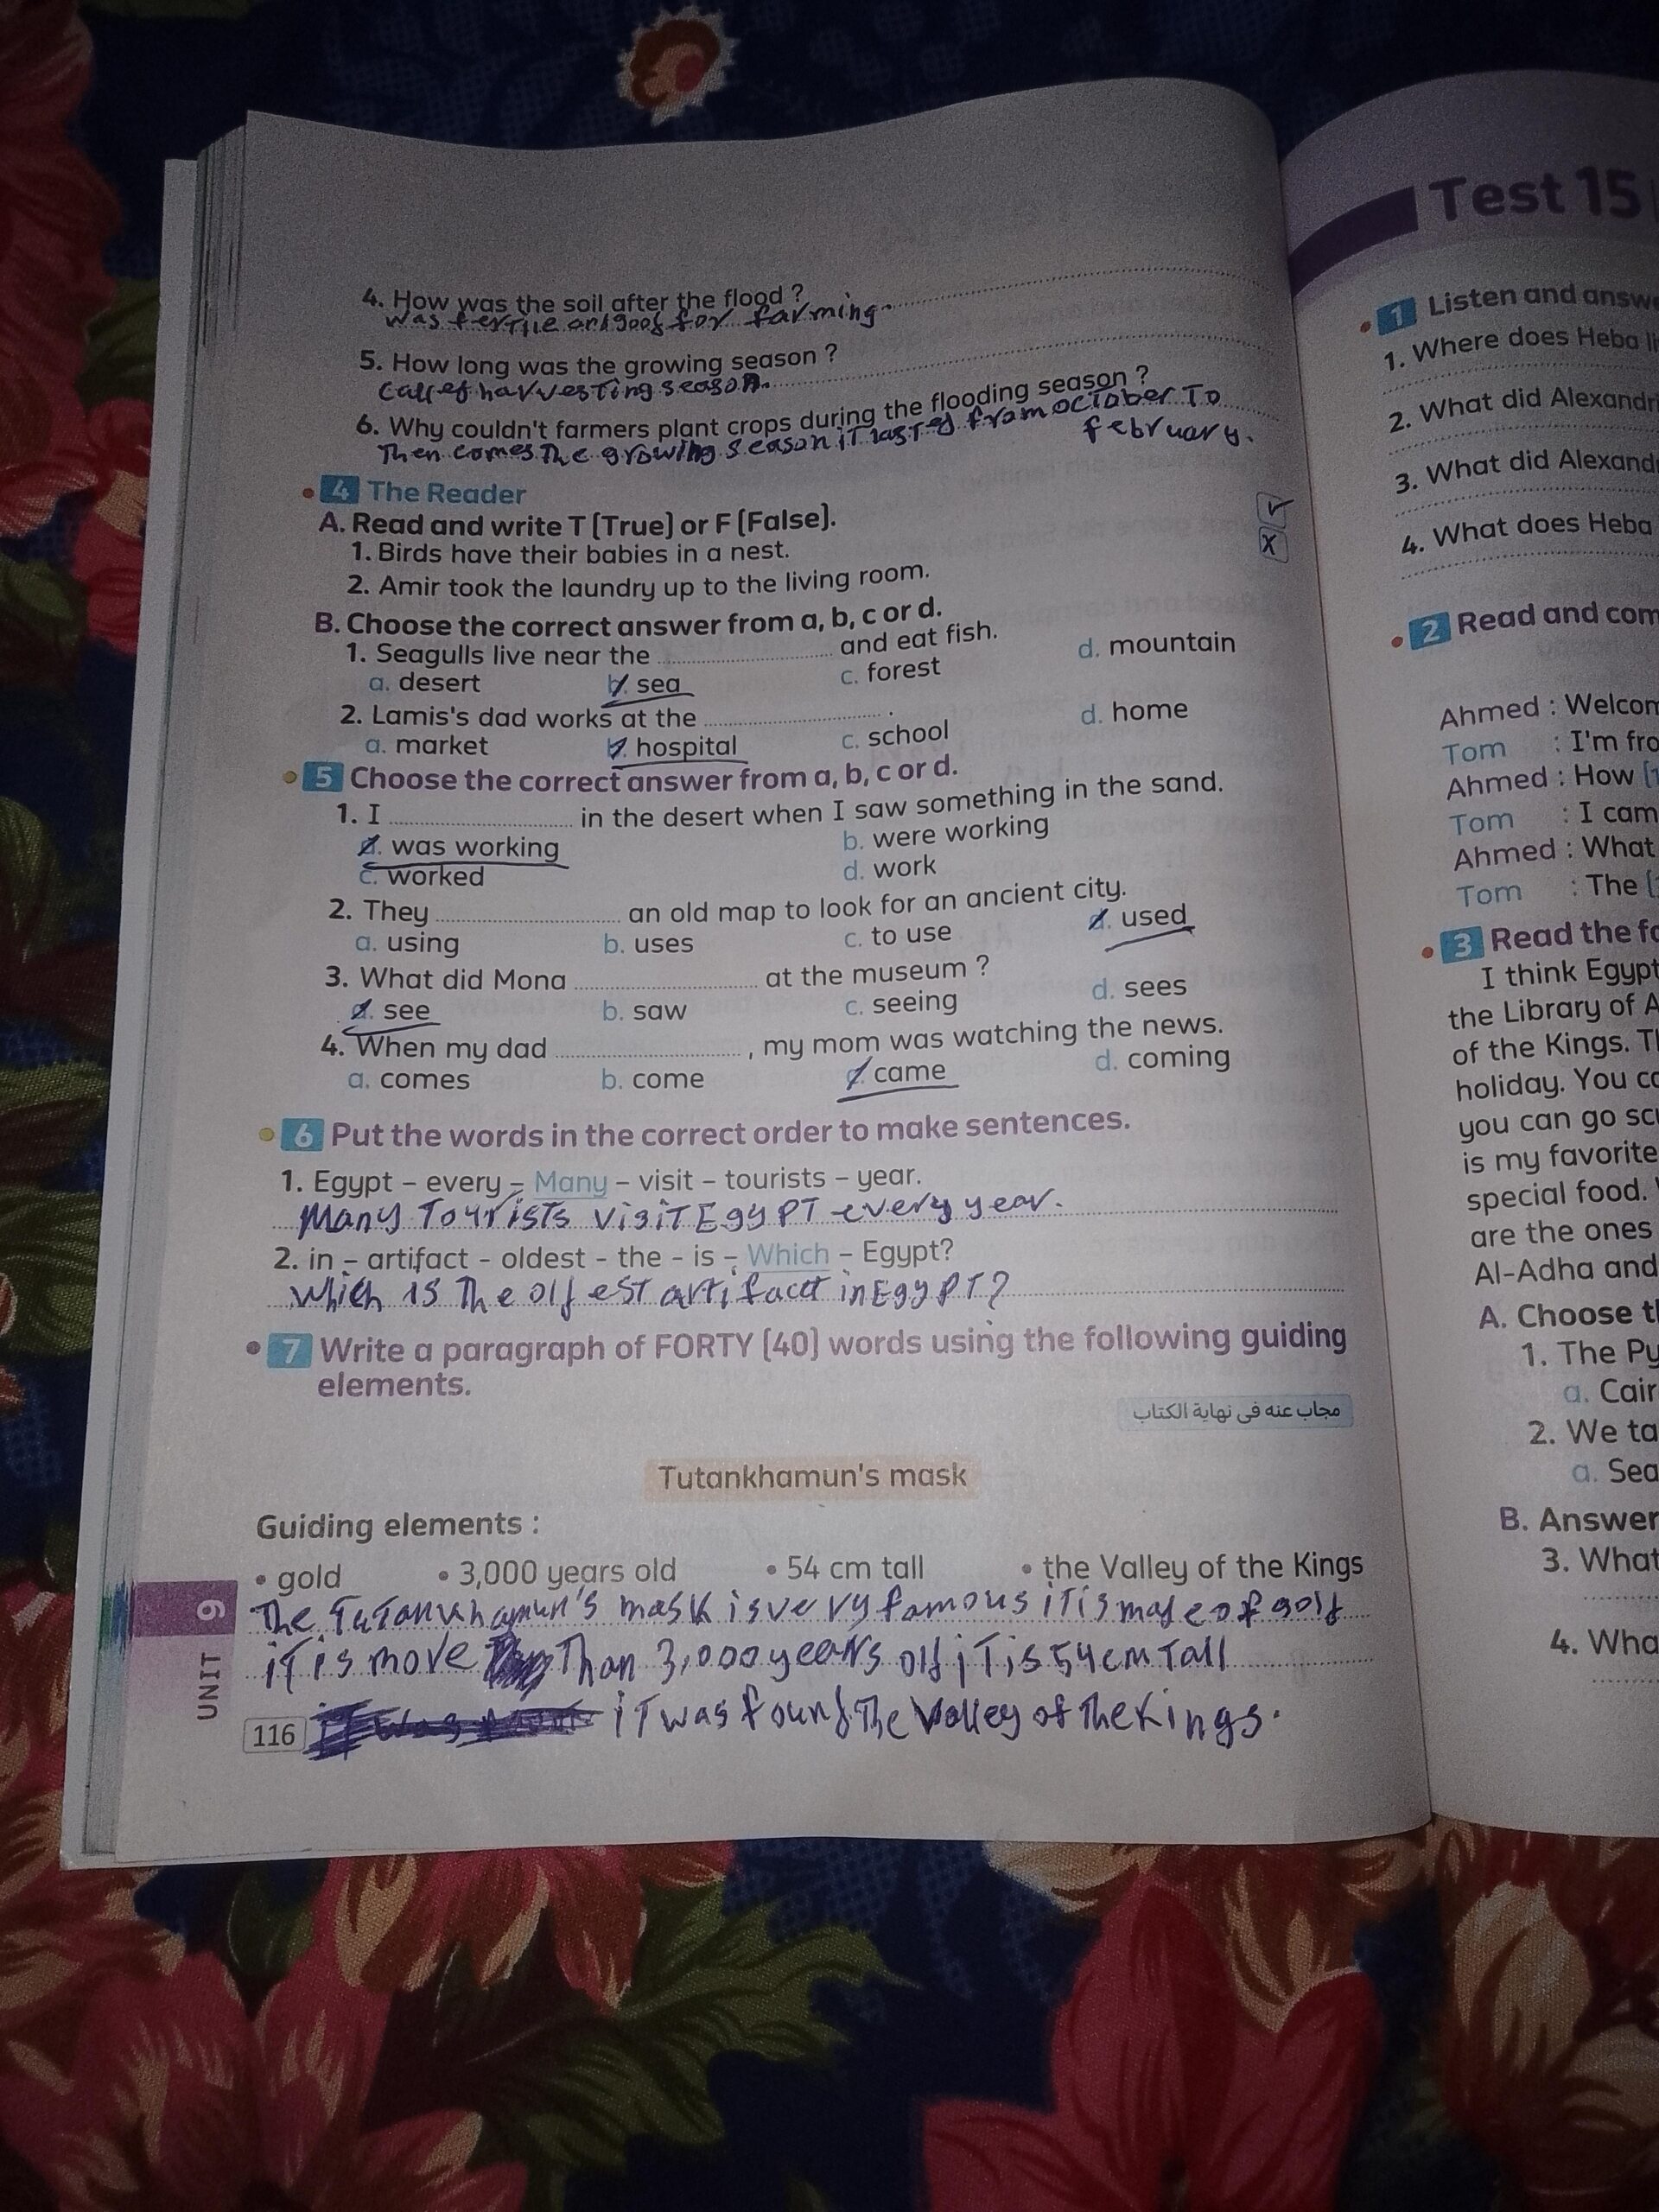 4. How was the soil after the flood ?
was fertile and good for farming.
5. How long was the growing season ?
called harvesting season.
6. Why couldn't farmers plant crops during the flooding season ?
Then comes The growing season iT lasted from october To
february.
4 The Reader
A. Read and write T (True) or F (False).
1. Birds have their babies in a nest. ✓
2. Amir took the laundry up to the living room. X
B. Choose the correct answer from a, b, c or d.
1. Seagulls live near the ................ and eat fish.
a. desert b. sea c. forest d. mountain
2. Lamis's dad works at the ................ .
a. market b. hospital c. school d. home
5 Choose the correct answer from a, b, c or d.
1. I ................ in the desert when I saw something in the sand.
a. was working b. were working
c. worked d. work
2. They ................ an old map to look for an ancient city.
a. using b. uses c. to use d. used
3. What did Mona ................ at the museum ?
a. see b. saw c. seeing d. sees
4. When my dad ................ , my mom was watching the news.
a. comes b. come c. came d. coming
6 Put the words in the correct order to make sentences.
1. Egypt – every – Many – visit – tourists – year.
Many Tourists visiT EgyPT every year.
2. in – artifact – oldest – the – is – Which – Egypt?
which is The oldest artifact in EgyPT?
7 Write a paragraph of FORTY (40) words using the following guiding
elements.
مجاب عنه فى نهاية الكتاب
Tutankhamun's mask
Guiding elements :
• gold • 3,000 years old • 54 cm tall • the Valley of the Kings
The TuTankhamun's mask is very famous iT is made of gold
iT is more Than 3,000 years old iT is 54 cm Tall
iT was found The Valley of The Kings.
UNIT 9
116
Test 15
1 Listen and answ
1. Where does Heba li
2. What did Alexandri
3. What did Alexand
4. What does Heba
2 Read and com
Ahmed : Welcom
Tom : I'm fro
Ahmed : How (1
Tom : I cam
Ahmed : What
Tom : The (
3 Read the fo
I think Egypt
the Library of A
of the Kings. T
holiday. You co
you can go scu
is my favorite
special food.
are the ones
Al-Adha and
A. Choose t
1. The Py
a. Cair
2. We ta
a. Sea
B. Answer
3. What
4. Wha